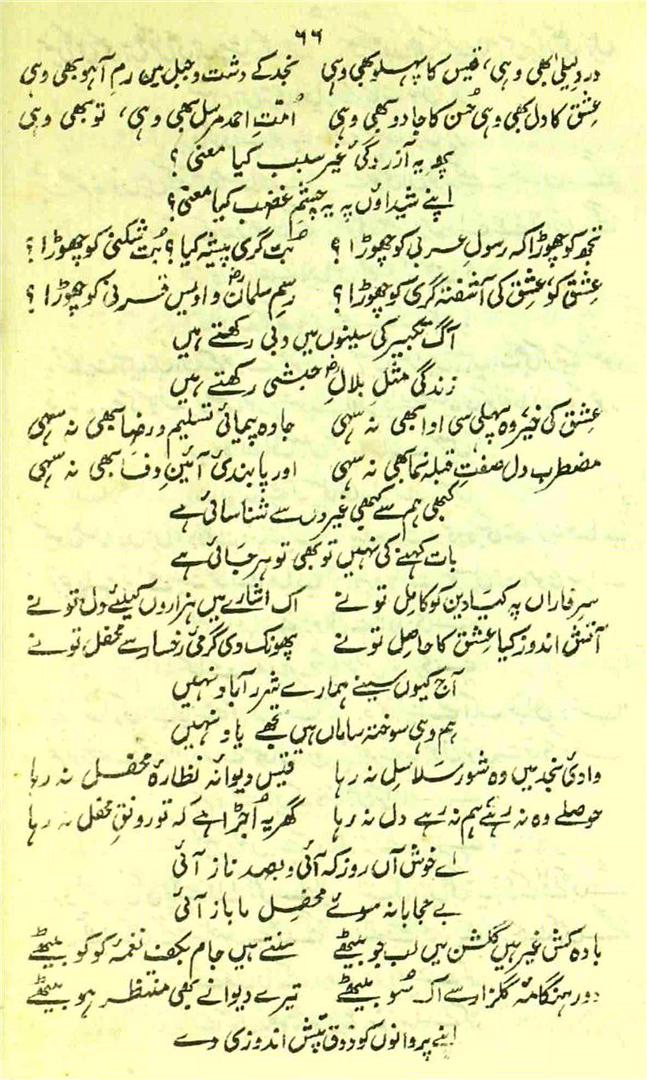 ۶۶
دردِ لیلیٰ بھی وہی، قیس کا پہلو بھی وہی نجد کے دشت و جبل میں رمِ آہو بھی وہی
عشق کا دل بھی وہی حُسن کا جادو بھی وہی اُمّتِ احمدِ مرسل بھی وہی، تو بھی وہی
پھر یہ آزردگیٔ غیرِ سبب کیا معنی؟
اپنے شیداؤں پہ یہ چشمِ غضب کیا معنی؟
تجھ کو چھوڑا کہ رسولِ عربی کو چھوڑا؟ بُت گری پیشہ کیا؟ بُت شکنی کو چھوڑا؟
عشق کو، عشق کی آشفتہ سری کو چھوڑا؟ رسمِ سلمانؓ و اویسِ قرنی کو چھوڑا؟
آگ تکبیر کی سینوں میں دبی رکھتے ہیں
زندگی مثلِ بلالِؓ حبشی رکھتے ہیں
عشق کی خیر، وہ پہلی سی ادا بھی نہ سہی جادہ پیمائیٔ تسلیم و رضا بھی نہ سہی
مضطرب دل صفتِ قبلہ نما بھی نہ سہی اور پابندیٔ آئینِ وفا بھی نہ سہی
کبھی ہم سے کبھی غیروں سے شناسائی ہے
بات کہنے کی نہیں تو بھی تو ہرجائی ہے
سرِ فاراں پہ کیا دین کو کامل تو نے اک اشارے میں ہزاروں کیلئے دل تو نے
آتش اندوز کیا عشق کا حاصل تو نے پھونک دی گرمیٔ رخسار سے محفل تو نے
آج کیوں سینے ہمارے شرر آباد نہیں
ہم وہی سوختہ ساماں ہیں تجھے یاد نہیں
وادیٔ نجد میں وہ شورِ سلاسل نہ رہا قیس دیوانۂ نظّارۂ محفل نہ رہا
حوصلے وہ نہ رہے، ہم نہ رہے، دل نہ رہا گھر یہ اُجڑا ہے کہ تو رونقِ محفل نہ رہا
اے خوش آں روز کہ آئی و بصد ناز آئی
بے حجابانہ سوئے محفلِ ما باز آئی
بادہ کش غیر ہیں گلشن میں لبِ جو بیٹھے سنتے ہیں جام بکف نغمۂ کوکو بیٹھے
دور ہنگامۂ گلزار سے اک سُو بیٹھے تیرے دیوانے بھی منتظرِ ہو بیٹھے
اپنے پروانوں کو ذوقِ تپش اندوزی دے